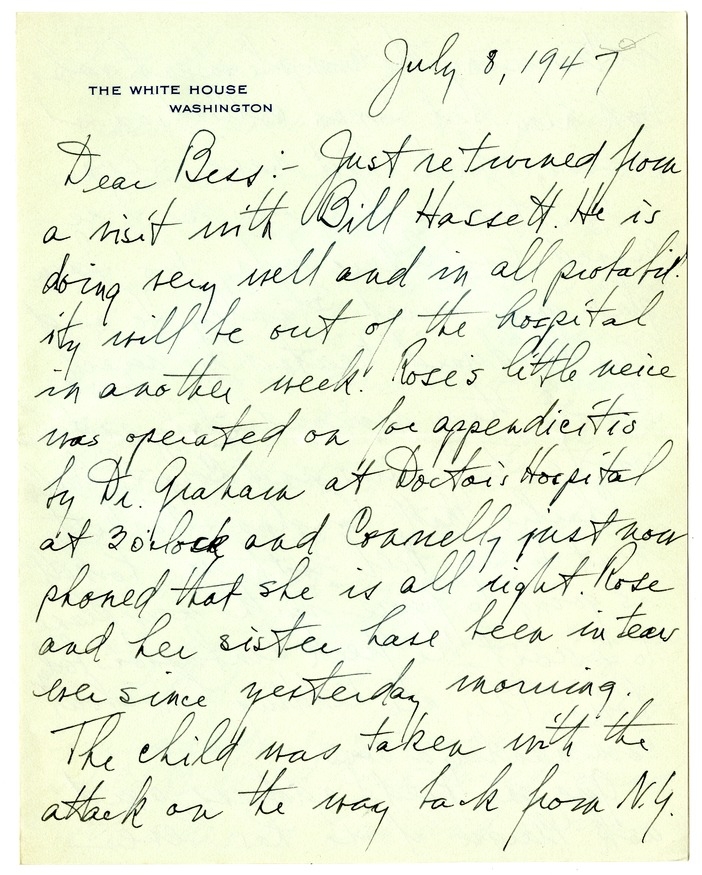 July 8, 1947
THE WHITE HOUSE
WASHINGTON
Dear Bess:- Just returned from
a visit with Bill Hassett. He is
doing very well and in all probabil-
ity will be out of the hospital
in another week. Rose's little neice
was operated on for appendicitis
by Dr. Graham at Doctors Hospital
at 3 o'clock and Connelly just now
phoned that she is all right. Rose
and her sister have been in tears
ever since yesterday morning.
The child was taken with the
attack on the way back from N.Y.